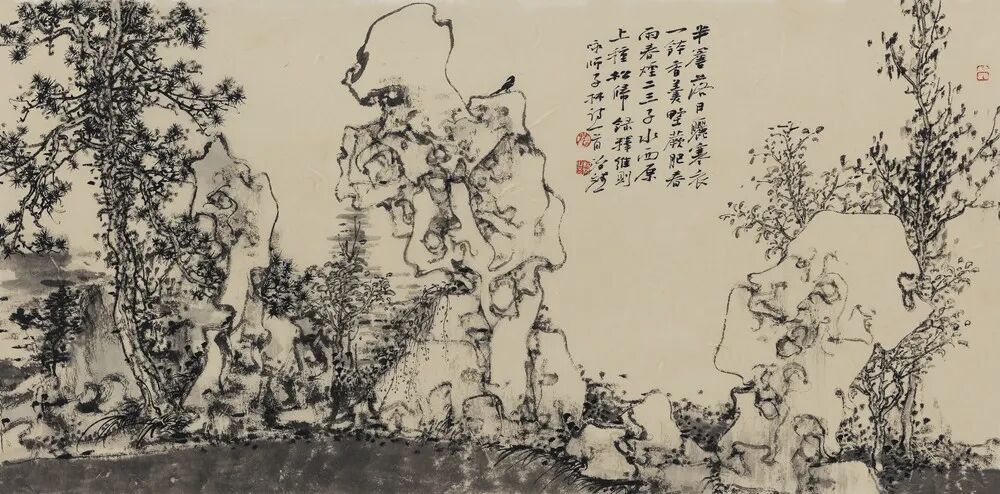 半簷落日曬寒衣
一鉢香羹野蕨肥春
雨春煙二三子水西原
上種松歸錄釋惟則
師子林詩一首